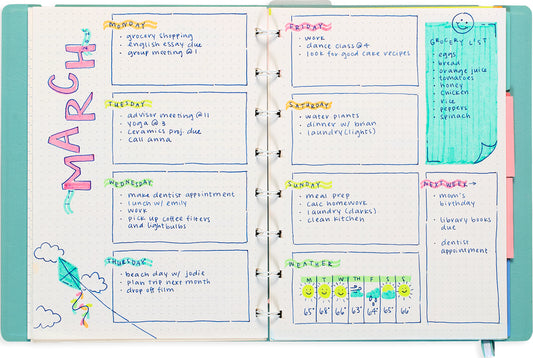 MARCH
MONDAY
• grocery shopping
• english essay due
• group meeting @ 1
TUESDAY
• advisor meeting @ 11
• yoga @ 3
• ceramics proj. due
• call anna
WEDNESDAY
• make dentist appointment
• lunch w/ emily
• work
• pick up coffee filters
and lightbulbs
THURSDAY
• beach day w/ jodie
• plan trip next month
• drop off film
FRIDAY
• work
• dance class @ 4
• look for good cake recipes
SATURDAY
• water plants
• dinner w/ brian
• laundry (lights)
SUNDAY
• meal prep
• calc homework
• laundry (darks)
• clean kitchen
WEATHER
M T W T F S S
65° 68° 66° 63° 64° 65° 66°
GROCERY LIST
• eggs
• bread
• orange juice
• tomatoes
• honey
• chicken
• rice
• peppers
• spinach
NEXT WEEK →
• mom's
birthday
• library books
due
• dentist
appointment